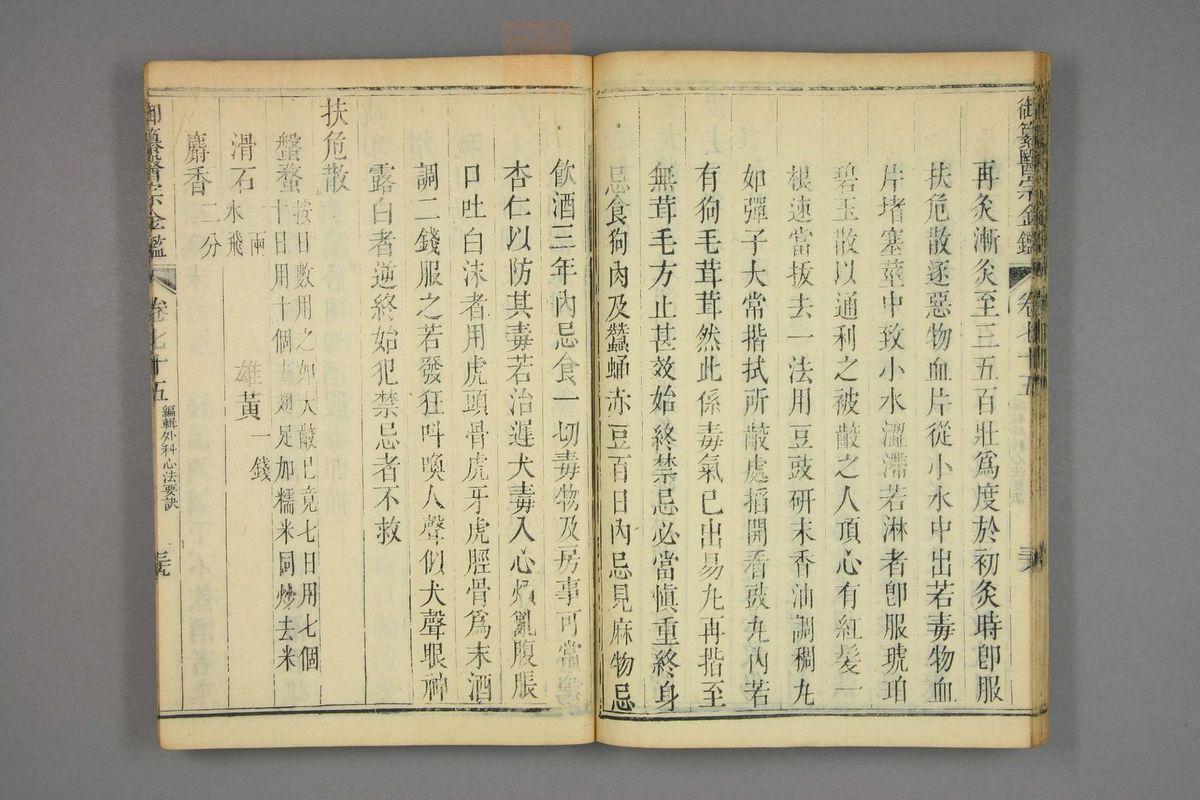 御纂醫宗金鑑 卷七十五
再灸漸灸至三五百壯爲度於初灸時卽服
扶危散逐惡物血片從小水中出若毒物血
片堵塞莖中致小水澀滯若淋者卽服琥珀
碧玉散以通利之被齩之人頂心有紅髮一
根速當拔去一法用豆豉研末香油調稠丸
如彈子大常揩拭所齩處掐開看豉丸內若
有狗毛茸茸然此係毒氣已出易丸再揩至
無茸毛方止甚效始終禁忌必當慎重終身
忌食狗肉及蠶蛹赤豆百日內忌見麻物忌
飲酒三年內忌食一切毒物及房事可常食
杏仁以防其毒若治遲犬毒入心煩亂腹脹
口吐白沫者用虎頭骨虎牙虎脛骨爲末酒
調二錢服之若發狂叫喚人聲似犬聲眼神
露白者逆終始犯禁忌者不救
扶危散
螌蝥 按日數用之如犬齩已竟七日用七個
十日用十個去翅足加糯米同炒去米
滑石 水飛 一兩 雄黃 一錢
麝香 二分
御纂醫宗金鑑 卷七十五 編輯外科心法要訣 三九